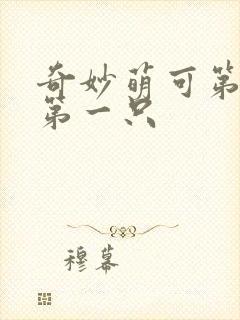 奇妙萌可第
第一只
穆幕